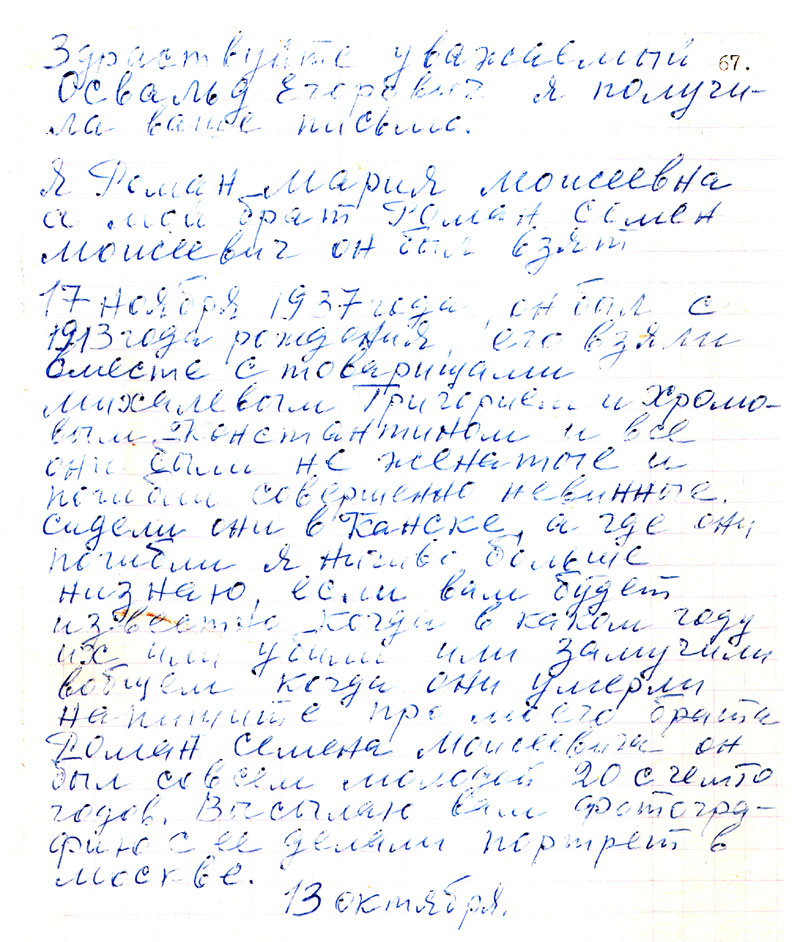 Здраствуйте уважаемый 67.
Освальд Егорович я получи-
ла ваше письмо.
Я Роман Мария Моисеевна
а мой брат Роман Семен
Моисеевич он был взят
17 ноября 1937 года он был с
1913 года рождения его взяли
вместе с товарищами
михалевым Григорием и Храмо-
вым Константином и все
они были не женатые и
погибли совершенно невинные.
сидели они в Канске, а где они
погибли я ничиво больше
низнаю, если вам будет
известно когда в каком году
их или убили или замучили
вобщем когда они умерли
напишите про моего брата
Роман Семена Моисеевича он
был совсем молодой 20 с чемто
годов. Высылаю вам фотогра-
фию с ее делали портрет в
москве.
13 октября.